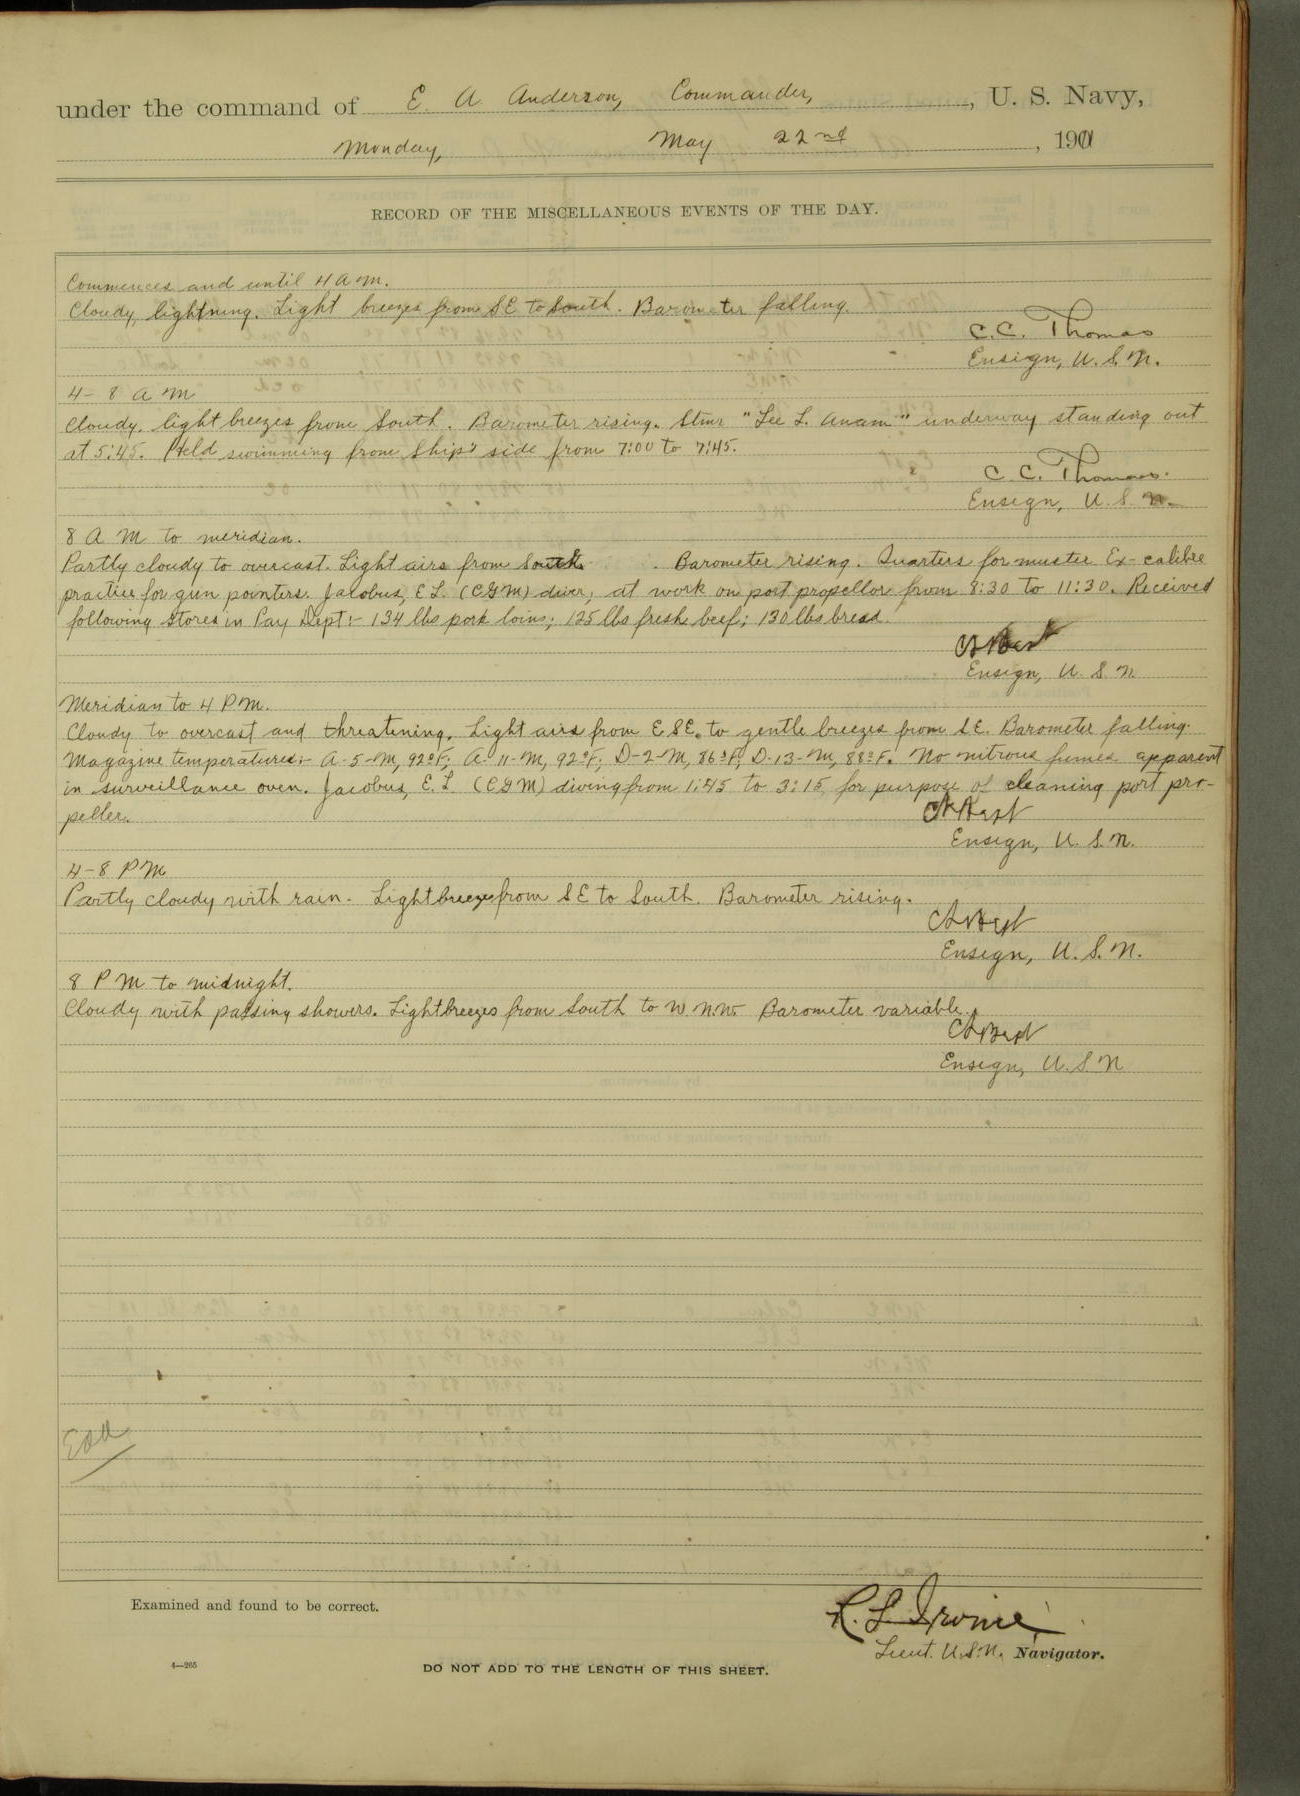 under the command of E. A. Anderson, Commander, U. S. Navy,
Monday, May 22nd, 191
RECORD OF THE MISCELLANEOUS EVENTS OF THE DAY.
Commences and until 4 A M.
Cloudy, lightning. Light breezes from SE to South. Barometer falling.
C. C. Thomas
Ensign, U. S. N.
4 - 8 A M
Cloudy. light breezes from South. Barometer rising. Stmr "Lee L. " underway standing out
at 5:45. Held swimming from Ship's side from 7:00 to 7:45.
C. C. Thomas.
Ensign, U. S. N.
8 A M to meridian.
Partly cloudy to overcast. Light airs from South. Barometer rising. Quarters for muster Ex-calibre
practice for gun pointers. Jacobus, E L. (CGM) diver, at work on port propellor from 8:30 to 11:30. Received
following stores in Pay Dept:- 134 lbs pork loins; 125 lbs fresh beef; 130 lbs bread.
Ensign, U. S. N
Meridian to 4 P M.
Cloudy to overcast and threatining. Light airs from ESE. to gentle breezes from SE. Barometer falling.
Magazine temperatures:- A-5-M, 92°F; A-11-M, 92°F; D-2-M, 86°F; D-13-M, 88°F. No nitrous fumes apparent
in surveillance oven. Jacobus, E. L (CGM) diving from 1:45 to 3:15, for purpose of cleaning port pro-
peller.
Ensign, U. S. N.
4-8 P M
Partly cloudy with rain. Light breezes from SE to South. Barometer rising.
Ensign, U. S. N.
8 P M to midnight.
Cloudy with passing showers. Light breezes from South to W NW. Barometer variable.
Ensign, U. S N
EAA
Examined and found to be correct.
R. L. Irvine,
Lieut. U.S.N. Navigator.
4—265
DO NOT ADD TO THE LENGTH OF THIS SHEET.